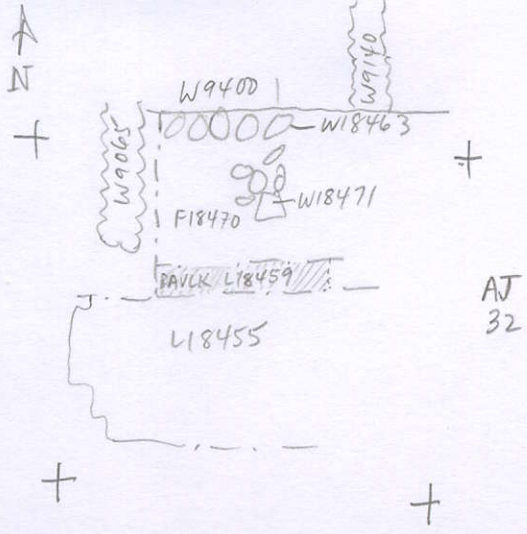 N
W9400
W9140
W9065
W18463
W18471
F18470
BAULK L18459
L18455
AJ
32